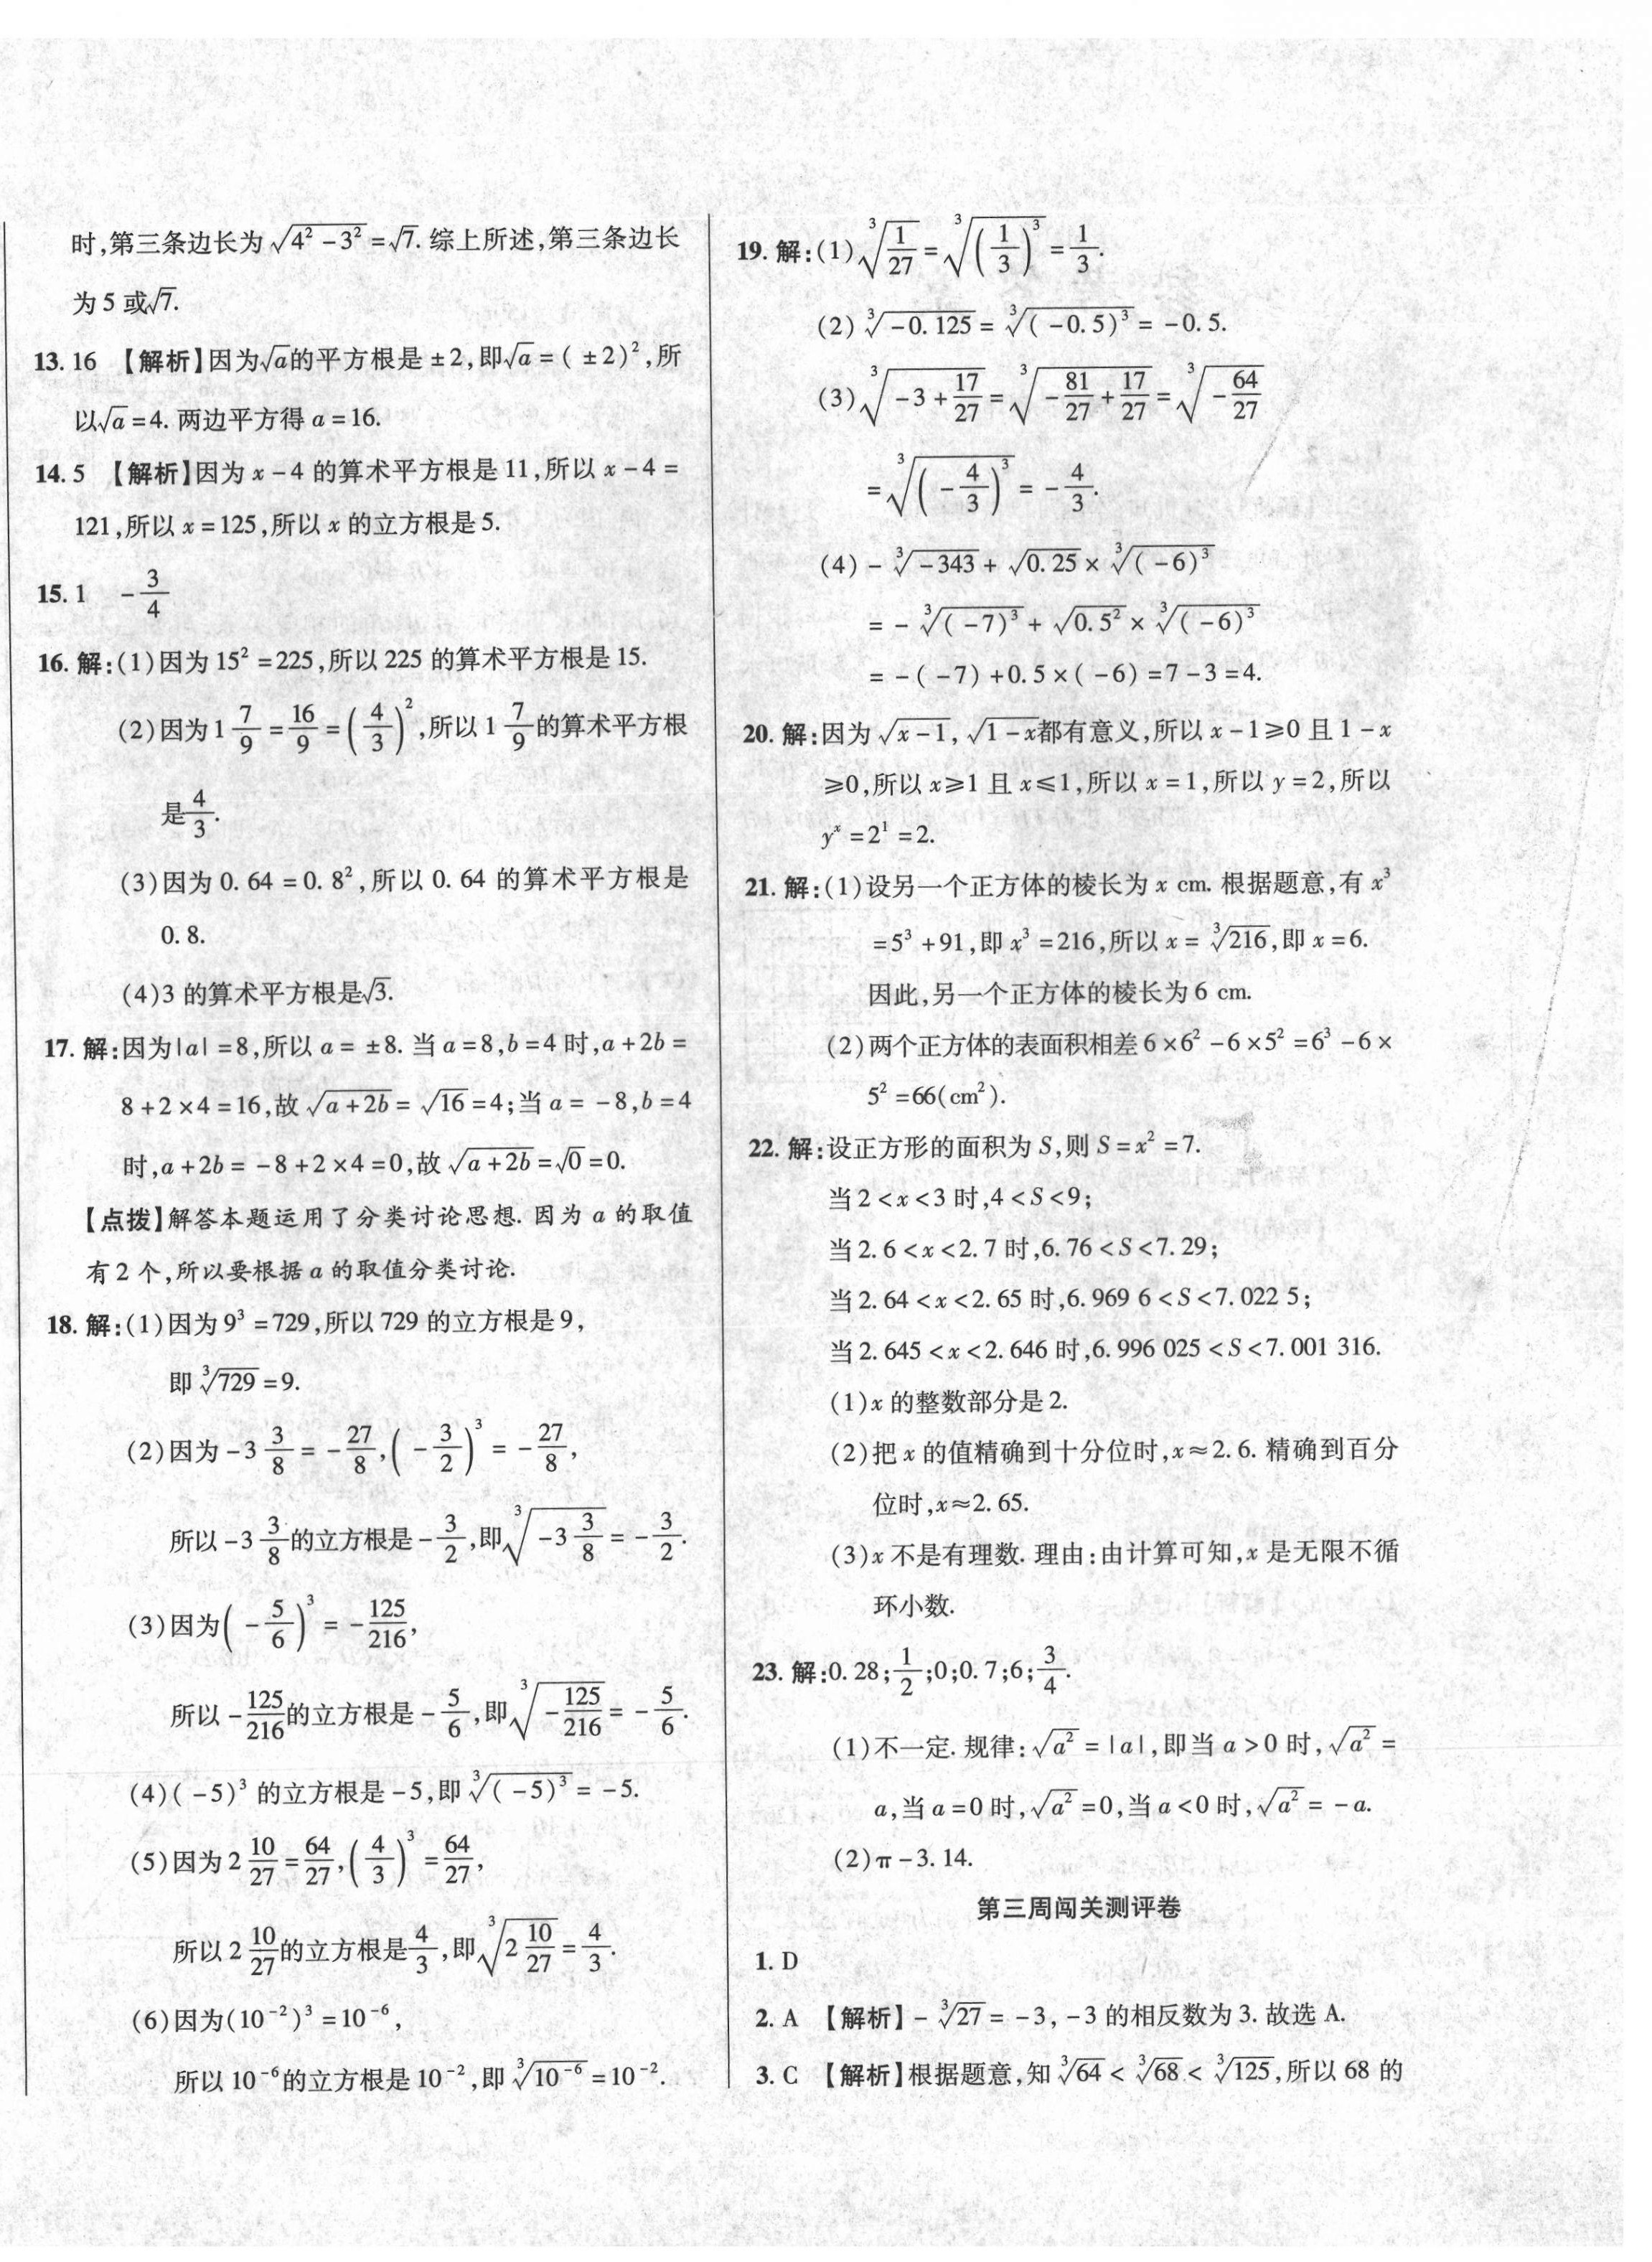 时,第三条边长为√(4² − 3²) = √7. 综上所述,第三条边长
为 5 或√7.
13. 16 【解析】因为√a的平方根是 ±2,即√a = ( ±2)²,所
以√a = 4. 两边平方得 a = 16.
14. 5 【解析】因为 x − 4 的算术平方根是 11,所以 x − 4 =
121,所以 x = 125,所以 x 的立方根是 5.
15. 1 −3/4
16. 解:(1)因为 15² = 225,所以 225 的算术平方根是 15.
(2)因为 1 7/9 = 16/9 = (4/3)²,所以 1 7/9 的算术平方根
是 4/3.
(3)因为 0. 64 = 0. 8²,所以 0. 64 的算术平方根是
0. 8.
(4)3 的算术平方根是√3.
17. 解:因为|a| = 8,所以 a = ±8. 当 a = 8,b = 4 时,a + 2b =
8 + 2 × 4 = 16,故 √(a + 2b) = √16 = 4;当 a = −8,b = 4
时,a + 2b = −8 + 2 × 4 = 0,故 √(a + 2b) = √0 = 0.
【点拨】解答本题运用了分类讨论思想. 因为 a 的取值
有 2 个,所以要根据 a 的取值分类讨论.
18. 解:(1)因为 9³ = 729,所以 729 的立方根是 9,
即 ∛729 = 9.
(2)因为 −3 3/8 = −27/8,(−3/2)³ = −27/8,
所以 −3 3/8 的立方根是 −3/2,即 ∛(−3 3/8) = −3/2.
(3)因为(−5/6)³ = −125/216,
所以 −125/216 的立方根是 −5/6,即 ∛(−125/216) = −5/6.
(4)( −5)³ 的立方根是 −5,即 ∛(( −5)³) = −5.
(5)因为 2 10/27 = 64/27,(4/3)³ = 64/27,
所以 2 10/27 的立方根是 4/3,即 ∛(2 10/27) = 4/3.
(6)因为(10⁻²)³ = 10⁻⁶,
所以 10⁻⁶ 的立方根是 10⁻²,即 ∛(10⁻⁶) = 10⁻².
19. 解:(1)∛(1/27) = ∛((1/3)³) = 1/3.
(2)∛(−0. 125) = ∛(( −0. 5)³) = −0. 5.
(3)∛(−3 + 17/27) = ∛(−81/27 + 17/27) = ∛(−64/27)
= ∛((−4/3)³) = −4/3.
(4) − ∛(−343) + √0. 25 × ∛(( −6)³)
= − ∛(( −7)³) + √(0. 5²) × ∛(( −6)³)
= − ( −7) + 0. 5 × ( −6) = 7 − 3 = 4.
20. 解:因为 √(x − 1), √(1 − x)都有意义,所以 x − 1 ≥ 0 且 1 − x
≥ 0,所以 x ≥ 1 且 x ≤ 1,所以 x = 1,所以 y = 2,所以
yˣ = 2¹ = 2.
21. 解:(1)设另一个正方体的棱长为 x cm. 根据题意,有 x³
= 5³ + 91,即 x³ = 216,所以 x = ∛216,即 x = 6.
因此,另一个正方体的棱长为 6 cm.
(2)两个正方体的表面积相差 6 × 6² − 6 × 5² = 6³ − 6 ×
5² = 66(cm²).
22. 解:设正方形的面积为 S,则 S = x² = 7.
当 2 < x < 3 时,4 < S < 9;
当 2. 6 < x < 2. 7 时,6. 76 < S < 7. 29;
当 2. 64 < x < 2. 65 时,6. 969 6 < S < 7. 022 5;
当 2. 645 < x < 2. 646 时,6. 996 025 < S < 7. 001 316.
(1)x 的整数部分是 2.
(2)把 x 的值精确到十分位时,x ≈ 2. 6. 精确到百分
位时,x ≈ 2. 65.
(3)x 不是有理数. 理由:由计算可知,x 是无限不循
环小数.
23. 解:0. 28;1/2;0;0. 7;6;3/4.
(1)不一定. 规律:√(a²) = |a|,即当 a > 0 时,√(a²) =
a,当 a = 0 时,√(a²) = 0,当 a < 0 时,√(a²) = −a.
(2)π − 3. 14.
第三周闯关测评卷
1. D
2. A 【解析】 − ∛27 = −3, −3 的相反数为 3. 故选 A.
3. C 【解析】根据题意,知 ∛64 < ∛68 < ∛125,所以 68 的